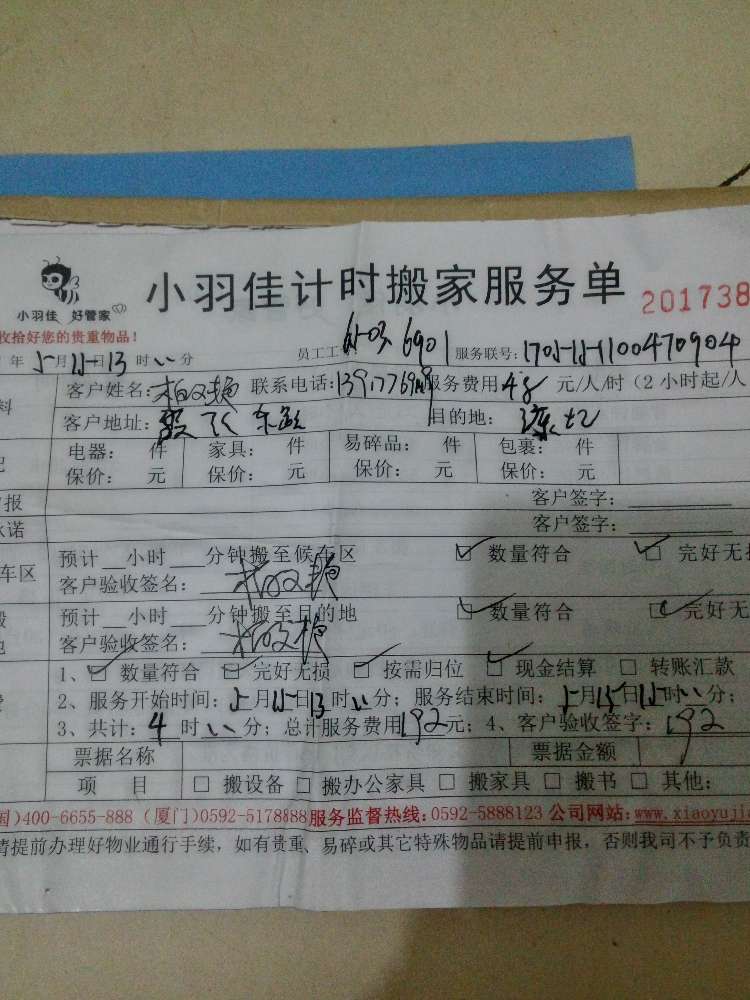 小羽佳 好管家
小羽佳计时搬家服务单 201738
收拾好您的贵重物品!
年 5月15日13时00分 员工工 6901 服务联号:
客户姓名: 联系电话: 服务费用48元/人/时(2小时起/人
客户地址: 目的地:
电器: 件 家具: 件 易碎品: 件 包裹: 件
保价: 元 保价: 元 保价: 元 保价: 元
报 客户签字:
承诺 客户签字:
预计__小时__分钟搬至候车区 数量符合 完好无损
车区 客户验收签名:
预计__小时__分钟搬至目的地 数量符合 完好无
客户验收签名:
1、 数量符合 完好无损 按需归位 现金结算 转账汇款
2、服务开始时间:5月15日13时00分; 服务结束时间:5月15日15时00分;
3、共计:4时00分; 总计服务费用192元; 4、客户验收签字:192
票据名称 票据金额
项 目 搬设备 搬办公家具 搬家具 搬书 其他:
国)400-6655-888 (厦门)0592-5178888 服务监督热线:0592-5888123 公司网站:www.xiaoyujia
请提前办理好物业通行手续,如有贵重、易碎或其它特殊物品请提前申报,否则我司不予负责